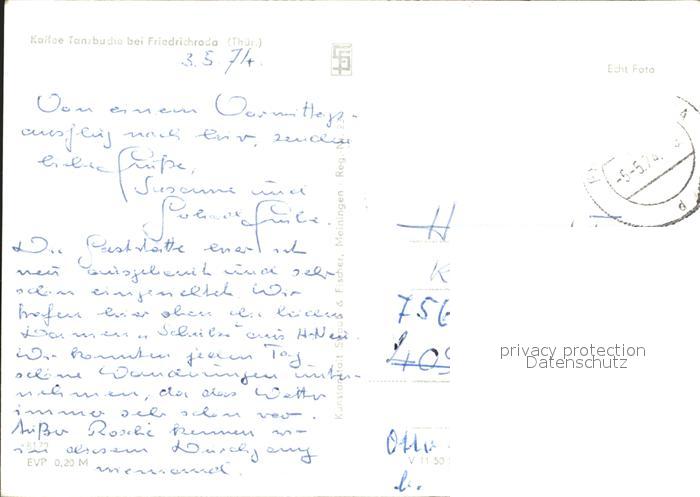 Kaffee Tanzbuche bei Friedrichroda (Thür.)
3.5.74.
Echt Foto
Von einem Vormittags-
ausflug nach hier, senden
liebe Grüße,
Susanne und
-5-5.74
Die Gaststätte hier ist
neu ausgebaut und sehr
schön eingerichtet. Wir
trafen hier oben die beiden
Damen „Schulze" aus H-Neu.
Wir konnten jeden Tag
schöne Wanderungen unter-
nehmen, da das Wetter
immer sehr schön war.
Außer kennen wir
in diesem Durchgang
niemand.
EVP 0,20 M
V 11 50
H
K
756
409
privacy protection
Datenschutz